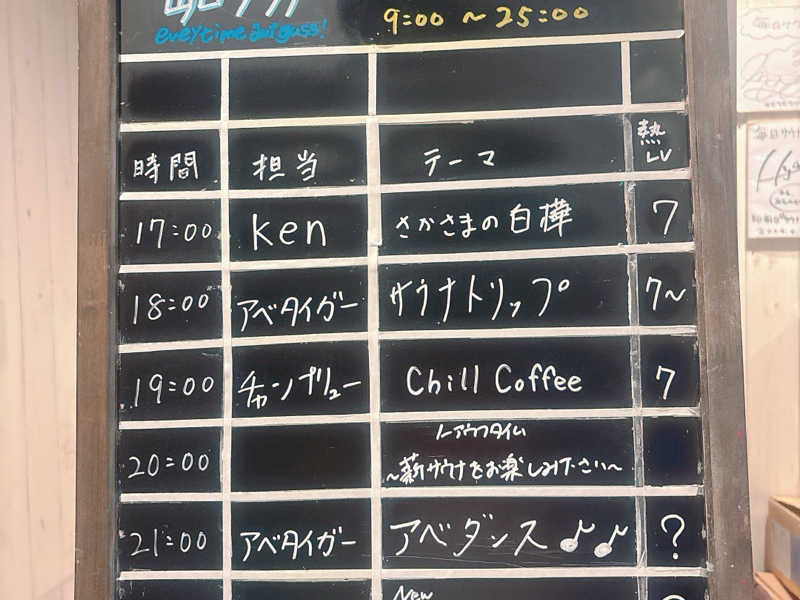 everytime aufguss!
9:00 ~ 25:00
時間 担当 テーマ 熱LV
17:00 Ken さかさまの白樺 7
18:00 アベタイガー サウナトリップ 7~
19:00 チャンブリュー Chill Coffee 7
ノーアウフタイム
20:00 ~薪サウナをお楽しみ下さい~
21:00 アベタイガー アベダンス♪♪ ?
New